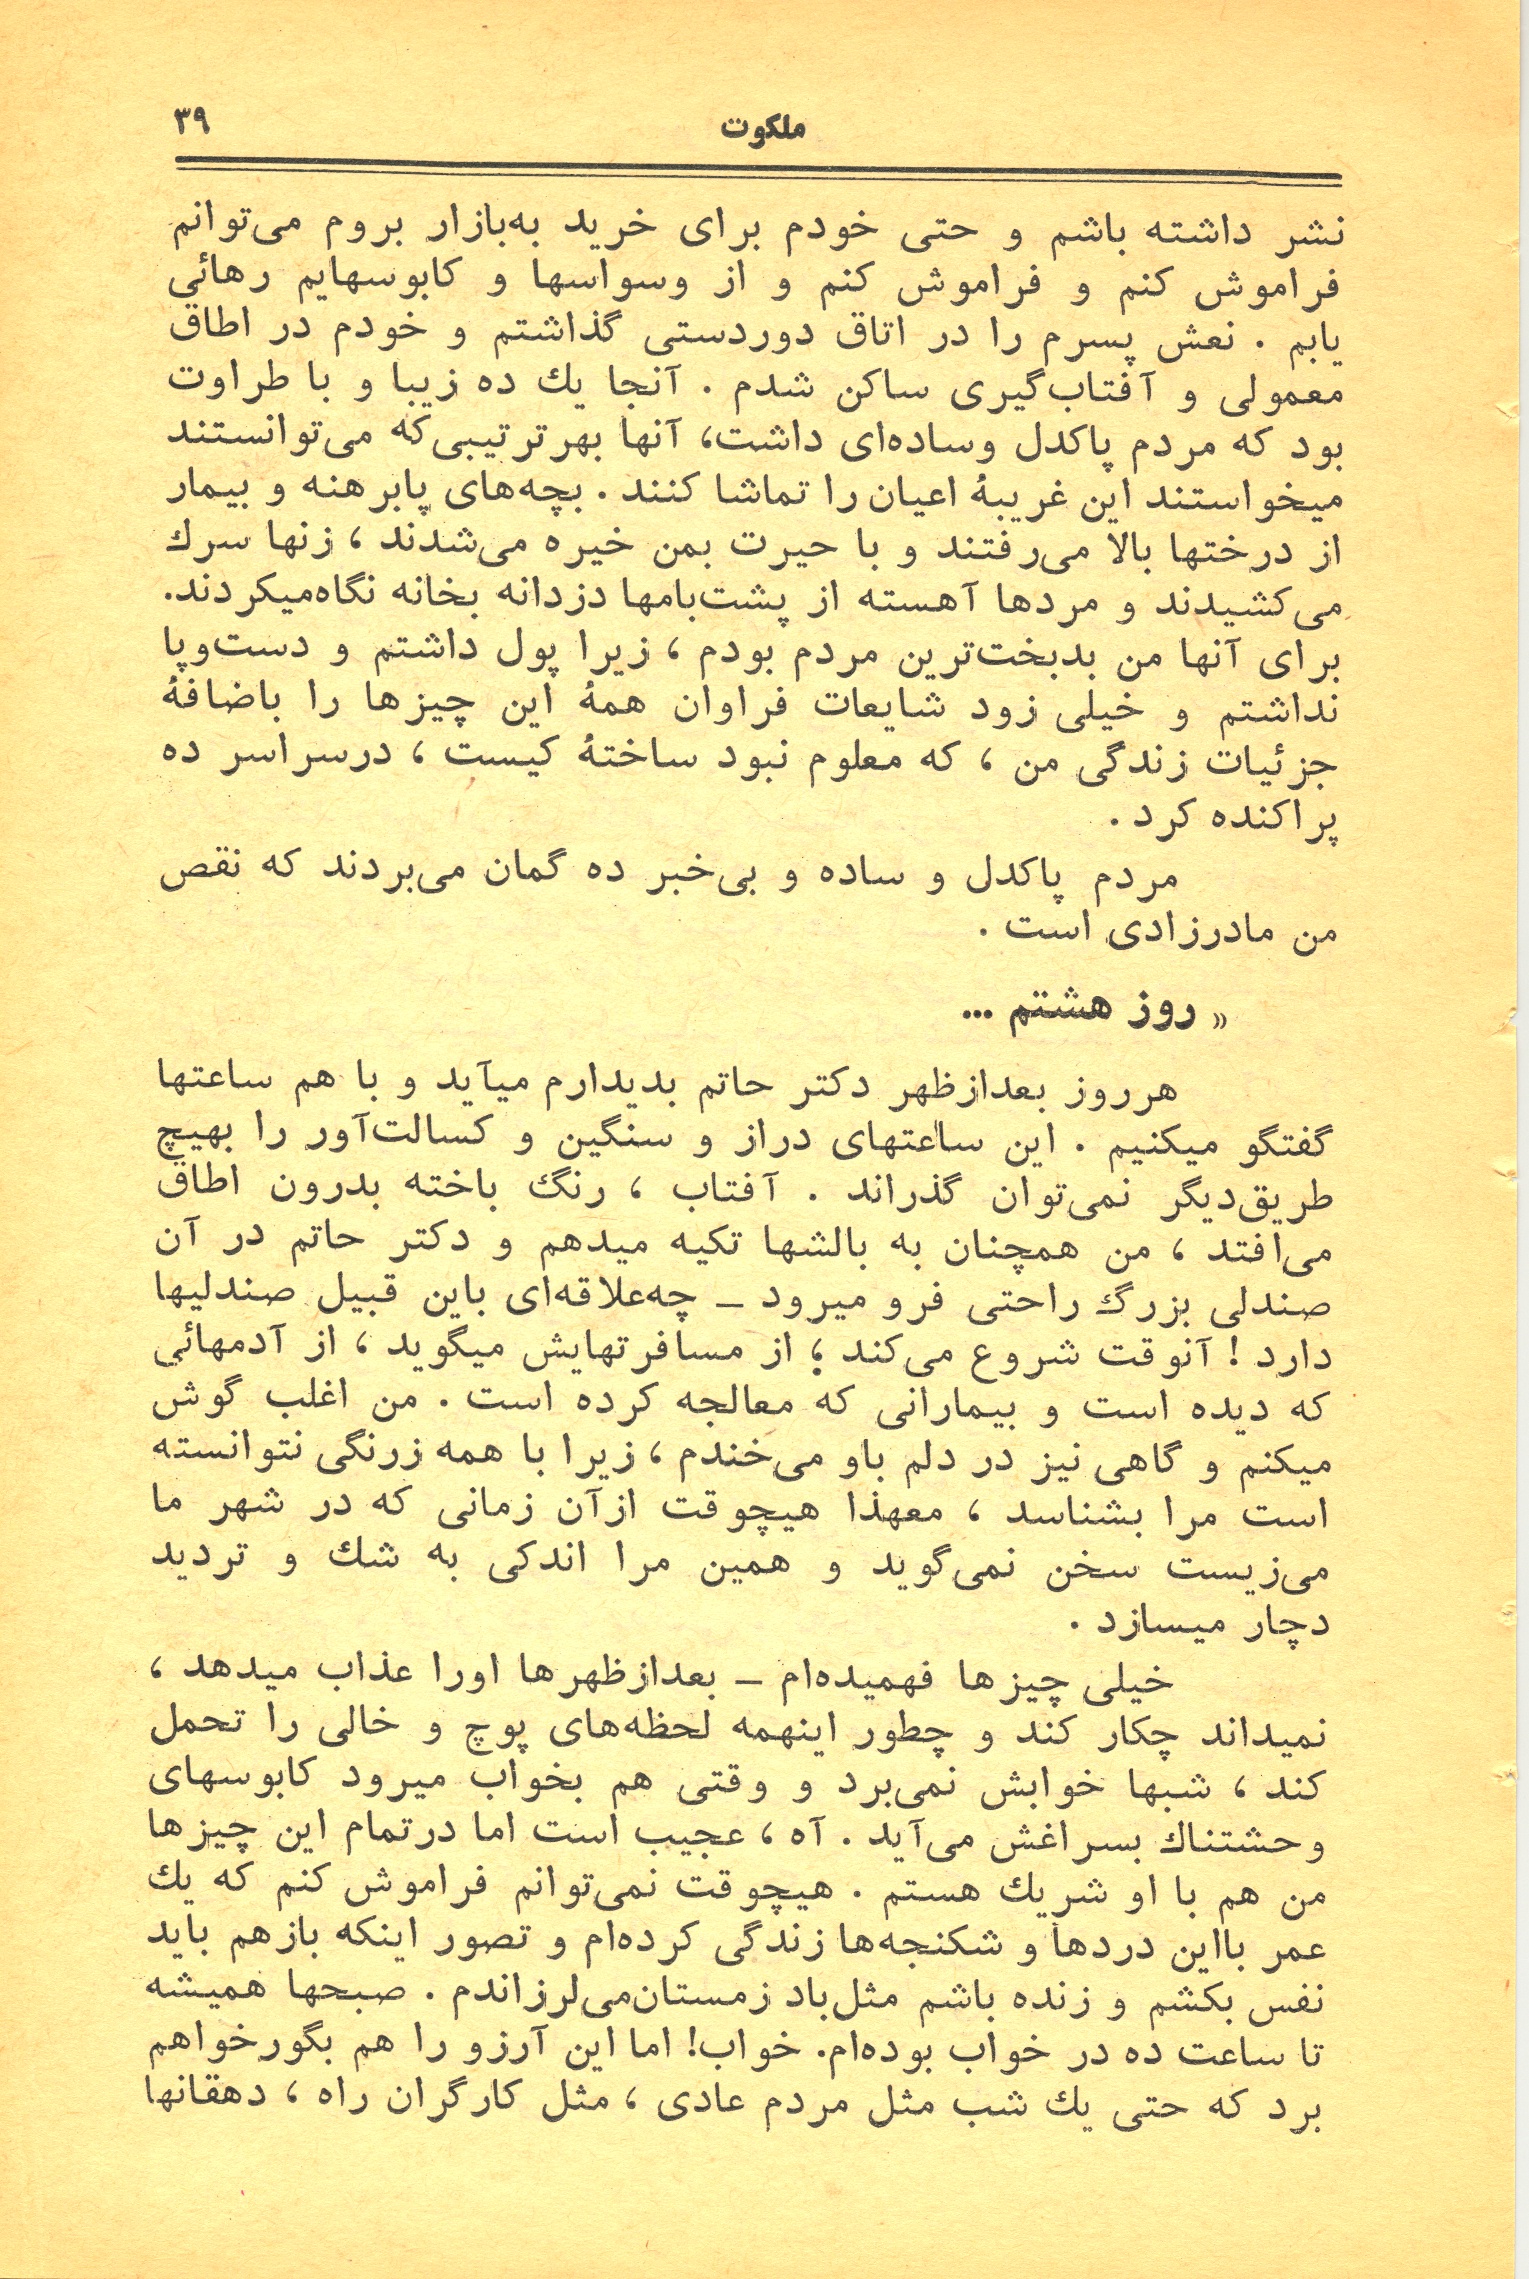 ملکوت
۳۹
نشر داشته باشم و حتی خودم برای خرید به‌بازار بروم می‌توانم
فراموش کنم و فراموش کنم و از وسواسها و کابوسهایم رهائی
یابم . نعش پسرم را در اتاق دوردستی گذاشتم و خودم در اطاق
معمولی و آفتاب‌گیری ساکن شدم . آنجا یك ده زیبا و با طراوت
بود که مردم پاکدل وساده‌ای داشت، آنها بهرترتیبی‌که می‌توانستند
میخواستند این غریبۀ اعیان را تماشا کنند . بچه‌های پابرهنه و بیمار
از درختها بالا می‌رفتند و با حیرت بمن خیره می‌شدند ، زنها سرك
می‌کشیدند و مردها آهسته از پشت‌بامها دزدانه بخانه نگاه‌میکردند.
برای آنها من بدبخت‌ترین مردم بودم ، زیرا پول داشتم و دست‌وپا
نداشتم و خیلی زود شایعات فراوان همۀ این چیزها را باضافۀ
جزئیات زندگی من ، که معلوم نبود ساختۀ کیست ، درسراسر ده
پراکنده کرد .
مردم پاکدل و ساده و بی‌خبر ده گمان می‌بردند که نقص
من مادرزادی است .
« روز هشتم ...
هرروز بعدازظهر دکتر حاتم بدیدارم میآید و با هم ساعتها
گفتگو میکنیم . این ساعتهای دراز و سنگین و کسالت‌آور را بهیچ
طریق‌دیگر نمی‌توان گذراند . آفتاب ، رنگ باخته بدرون اطاق
می‌افتد ، من همچنان به بالشها تکیه میدهم و دکتر حاتم در آن
صندلی بزرگ راحتی فرو میرود ــ چه‌علاقه‌ای باین قبیل صندلیها
دارد ! آنوقت شروع می‌کند ؛ از مسافرتهایش میگوید ، از آدمهائی
که دیده است و بیمارانی که معالجه کرده است . من اغلب گوش
میکنم و گاهی نیز در دلم باو می‌خندم ، زیرا با همه زرنگی نتوانسته
است مرا بشناسد ، معهذا هیچوقت ازآن زمانی که در شهر ما
می‌زیست سخن نمی‌گوید و همین مرا اندکی به شك و تردید
دچار میسازد .
خیلی چیزها فهمیده‌ام ــ بعدازظهرها اورا عذاب میدهد ،
نمیداند چکار کند و چطور اینهمه لحظه‌های پوچ و خالی را تحمل
کند ، شبها خوابش نمی‌برد و وقتی هم بخواب میرود کابوسهای
وحشتناك بسراغش می‌آید . آه ، عجیب است اما درتمام این چیزها
من هم با او شریك هستم . هیچوقت نمی‌توانم فراموش کنم که یك
عمر بااین دردها و شکنجه‌ها زندگی کرده‌ام و تصور اینکه بازهم باید
نفس بکشم و زنده باشم مثل‌باد زمستان‌می‌لرزاندم . صبحها همیشه
تا ساعت ده در خواب بوده‌ام. خواب! اما این آرزو را هم بگورخواهم
برد که حتی یك شب مثل مردم عادی ، مثل کارگران راه ، دهقانها